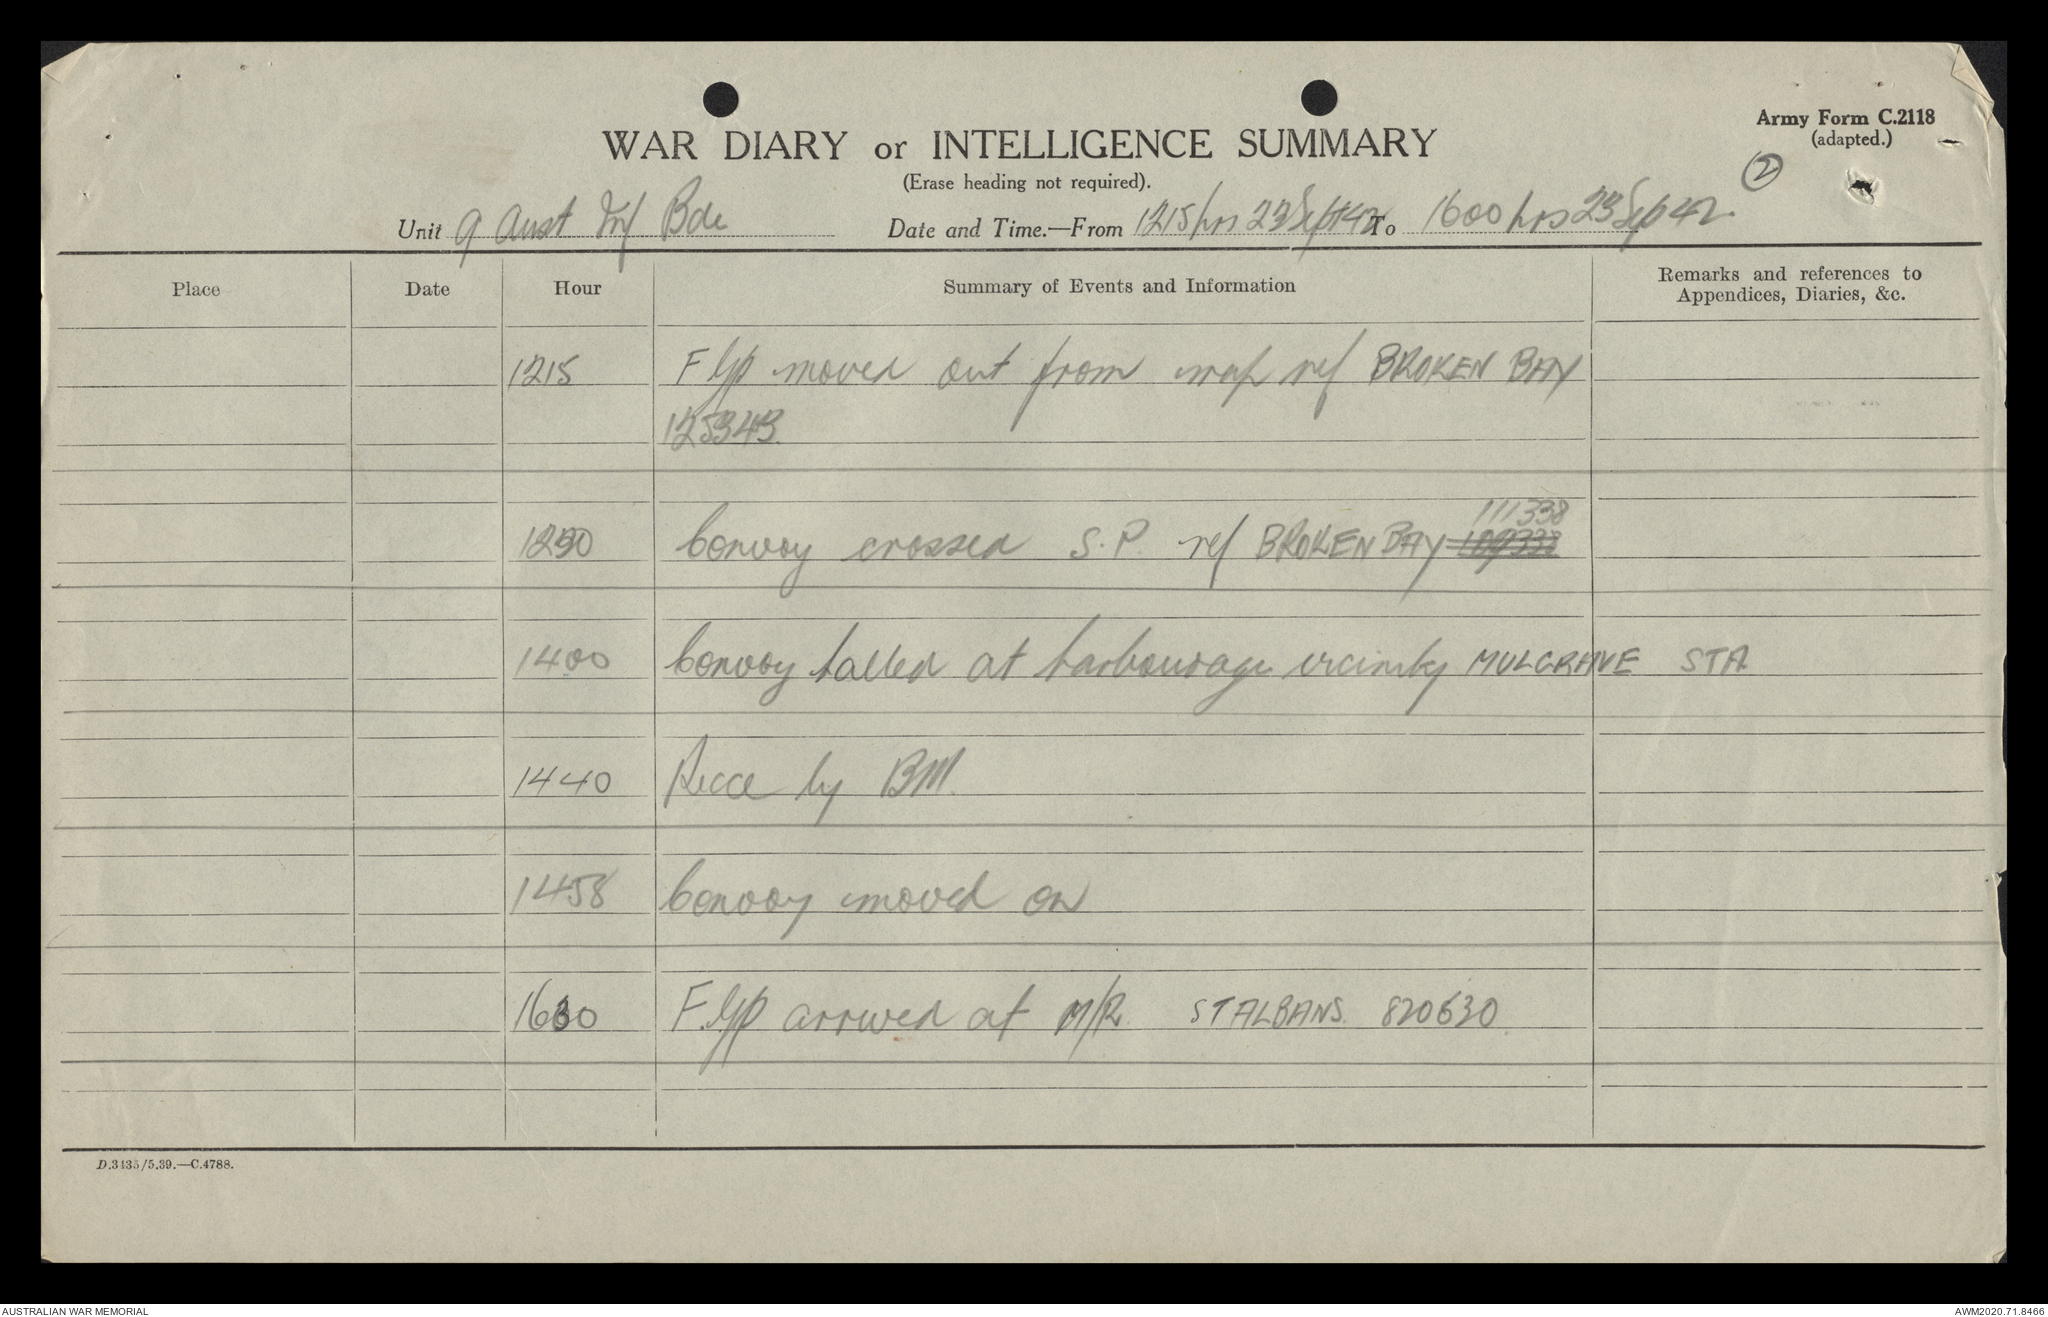 Army Form C.2118
(adapted.)
WAR DIARY or INTELLIGENCE SUMMARY
(Erase heading not required).
2
Unit 9 Aust Inf Bde Date and Time.—From 1215 hrs 23 Sept 42 To 1600 hrs 23 Sep 42.
Place Date Hour Summary of Events and Information Remarks and references to
Appendices, Diaries, &c.
1215 F Gp moved out from map ref BROKEN BAY
125343.
111338
Convoy crossed S.P. ref BROKEN BAY 109338
1400 Convoy halted at harbourage vicinity MULGRAVE STA
1440 Recce by BM.
1458 Convoy moved on
F. Gp arrived at M/R. ST ALBANS. 820630
D.3435/5.39.—C.4788.
AUSTRALIAN WAR MEMORIAL
AWM2020.71.8466